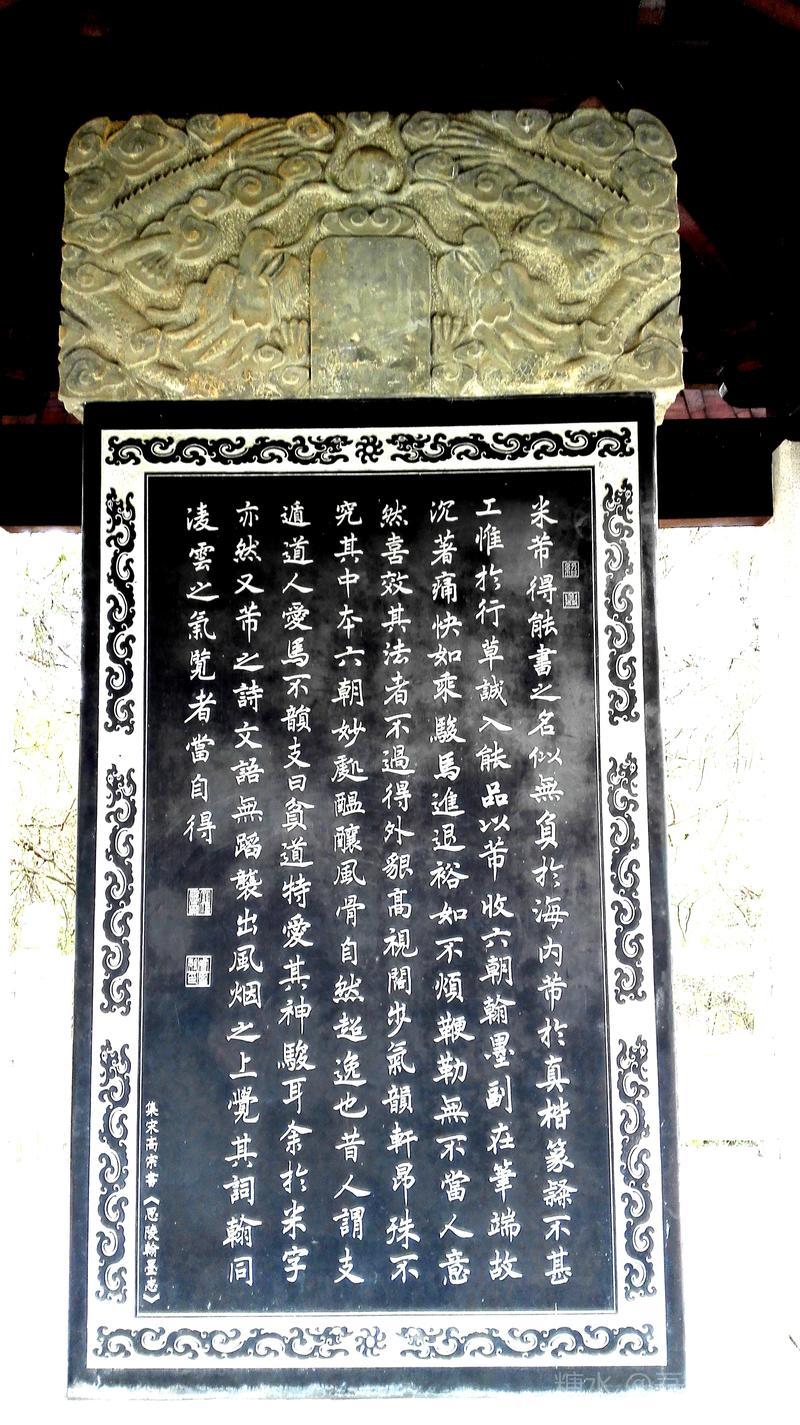 米芾得能書之名似無負於海内芾於真楷篆隸不甚
工惟於行草誠入能品以芾收六朝翰墨副在筆端故
沉著痛快如乘駿馬進退裕如不煩鞭勒無不當人意
然喜效其法者不過得外貌高視闊步氣韻軒昂殊不
究其中本六朝妙處醞釀風骨自然超逸也昔人謂支
遁道人愛馬不韻支曰貧道特愛其神駿耳余於米字
亦然又芾之詩文語無蹈襲出風烟之上覺其詞翰同
凌雲之氣覽者當自得
集宋高宗書《思陵翰墨志》
糖水 @吾